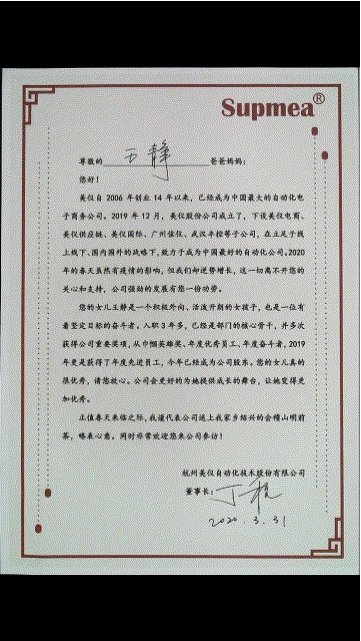 Supmea®
尊敬的 王静 爸爸妈妈：
您好！
美仪自 2006 年创业 14 年以来，已经成为中国最大的自动化电
子商务公司。2019 年 12 月，美仪股份公司成立了，下设美仪电商、
美仪供应链、美仪国际、广州佳仪、武汉丰控等子公司，在立足于线
上线下、国内国外的战略下，致力于成为中国最好的自动化公司。2020
年的春天虽然有疫情的影响，但我们却逆势增长，这一切离不开您的
关心和支持，公司强劲的发展有您一份功劳。
您的女儿王静是一个积极外向、活泼开朗的女孩子，也是一位有
着坚定目标的奋斗者。入职 3 年多，已经是部门的核心骨干，并多次
获得公司重要奖项，从巾帼英雄奖、年度优秀员工、年度奋斗者，2019
年更是获得了年度先进员工，今年已经成为公司股东。您的女儿真的
很优秀，请您放心。公司会更好的为她提供成长的舞台，让她变得更
加优秀。
正值春天来临之际，我谨代表公司送上我家乡绍兴的会稽山明前
茶，略表心意。同时非常欢迎您来公司参访！
杭州美仪自动化技术股份有限公司
董事长：丁程
2020.3.31